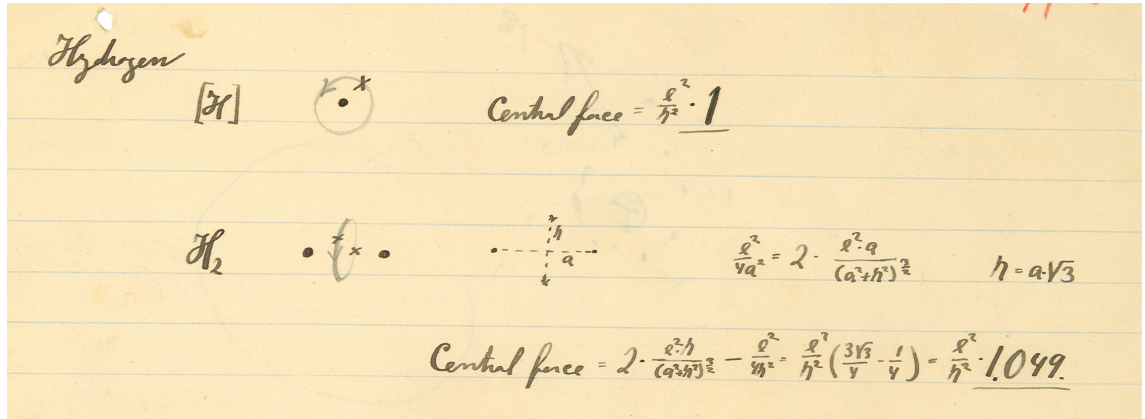 Hydrogen
[H] Central force = e²/h² · 1
h a
H₂ e²/4a² = 2 · e²·a/(a²+h²)^(3/2) h = a·√3
Central force = 2 · e²·h/(a²+h²)^(3/2) − e²/4h² = e²/h² (3√3/4 − 1/4) = e²/h² · 1.049.